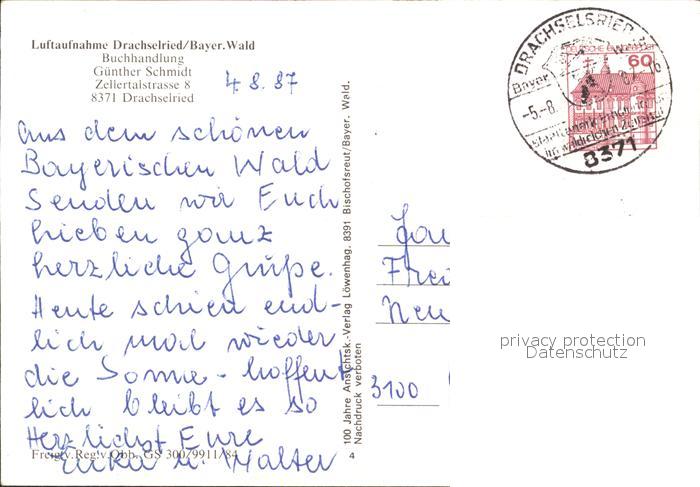 Luftaufnahme Drachselried/Bayer. Wald
Buchhandlung
Günther Schmidt
Zellertalstrasse 8
8371 Drachselried
4 8. 87
Aus dem schönen
Bayerischen Wald
Senden wir Euch
lieben ganz
herzliche Grüße.
Heute schien end-
lich mal wieder
die Sonne - hoffent
lich bleibt es so
Herzlichst Eure
Erika u. Walter
Freig. v. Reg. v. Obb. GS 300/9911/84
100 Jahre Ansichtsk.-Verlag Löwenhag, 8391 Bischofsreut/Bayer. Wald.
Nachdruck verboten
4
DRACHSELSRIED
Bayer. Wald
-5.-8.
8371
DEUTSCHE BUNDESPOST
60
Frei
Neu
3100
privacy protection
Datenschutz